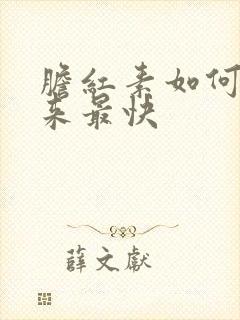 膽紅素如何
來最快
薛文獻